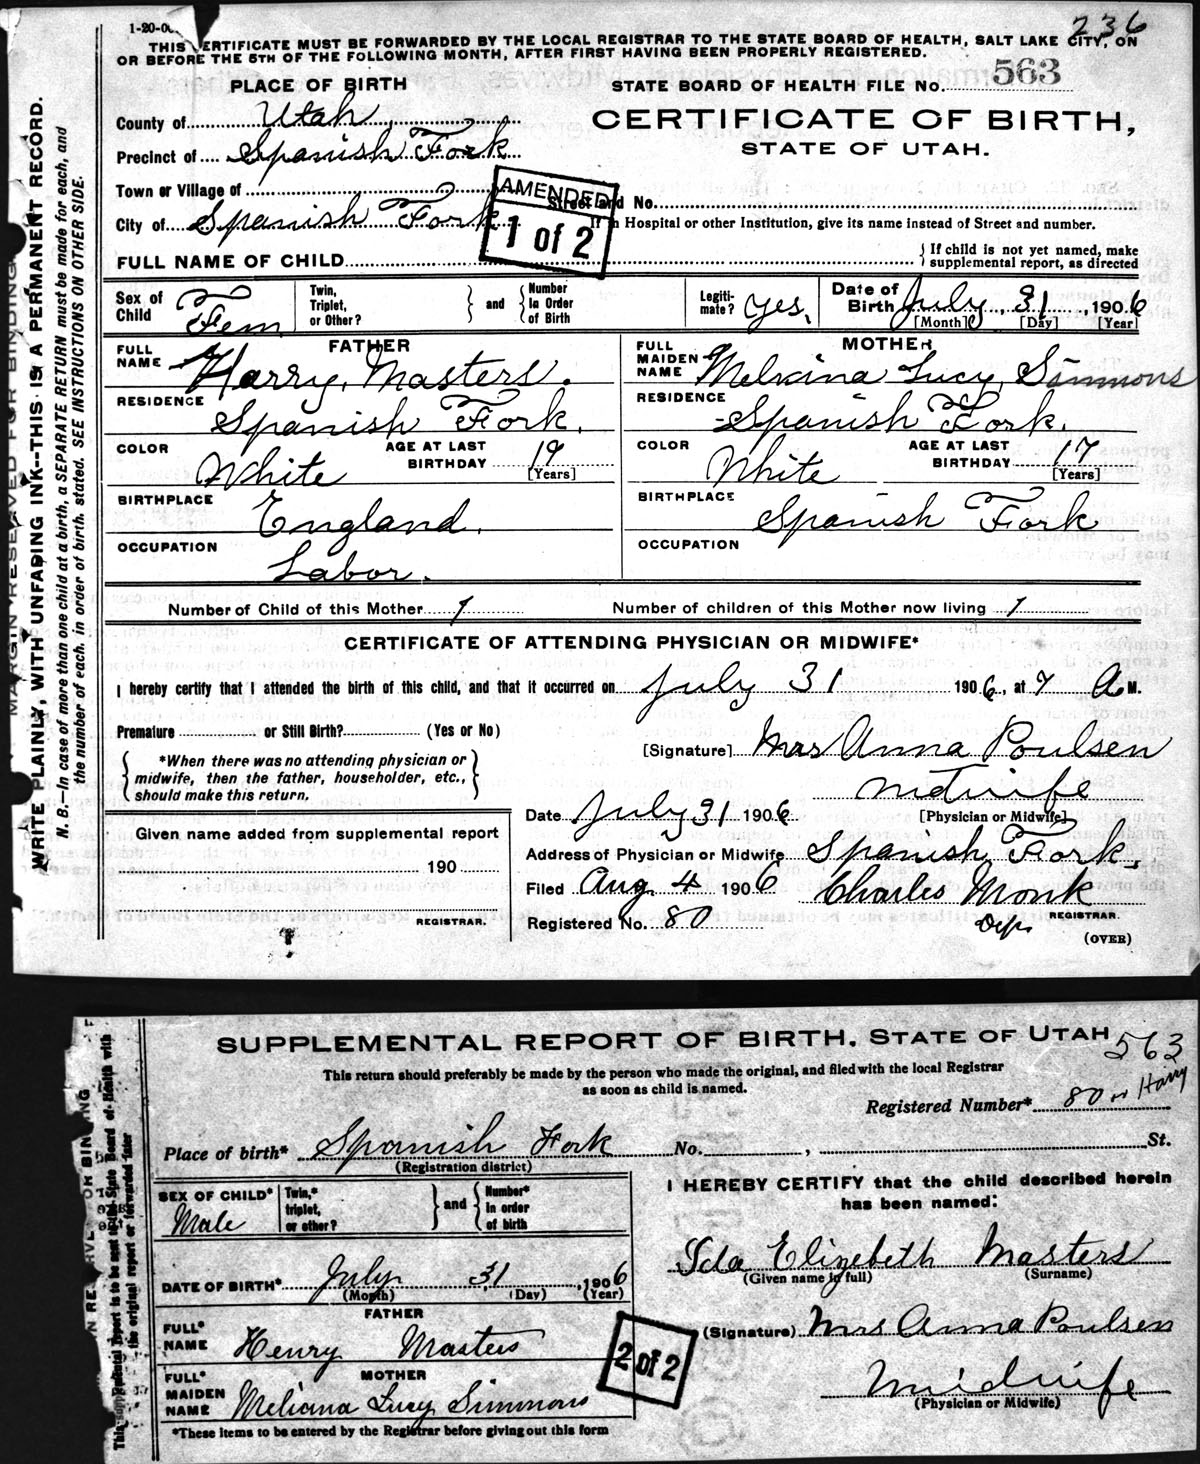 1-20-06
236
THIS CERTIFICATE MUST BE FORWARDED BY THE LOCAL REGISTRAR TO THE STATE BOARD OF HEALTH, SALT LAKE CITY, ON
OR BEFORE THE 5TH OF THE FOLLOWING MONTH, AFTER FIRST HAVING BEEN PROPERLY REGISTERED.
PLACE OF BIRTH
STATE BOARD OF HEALTH FILE No. 563
County of Utah
CERTIFICATE OF BIRTH,
STATE OF UTAH.
Precinct of Spanish Fork
Town or Village of
AMENDED
1 of 2
Street and No.
City of Spanish Fork
If in Hospital or other Institution, give its name instead of Street and number.
FULL NAME OF CHILD
{ If child is not yet named, make
supplemental report, as directed
Sex of Child Fem
Twin, Triplet, or Other? } and { Number In Order of Birth
Legiti-mate? yes,
Date of Birth July 31, 1906
[Month] [Day] [Year]
FATHER
FULL NAME Harry Masters.
MOTHER
FULL MAIDEN NAME Melvina Lucy Simmons
RESIDENCE Spanish Fork.
RESIDENCE Spanish Fork.
COLOR White AGE AT LAST BIRTHDAY 19 [Years]
COLOR White AGE AT LAST BIRTHDAY 17 [Years]
BIRTHPLACE England.
BIRTHPLACE Spanish Fork
OCCUPATION Labor.
OCCUPATION
Number of Child of this Mother 1
Number of children of this Mother now living 1
CERTIFICATE OF ATTENDING PHYSICIAN OR MIDWIFE*
I hereby certify that I attended the birth of this child, and that it occurred on July 31 1906, at 7 A M.
Premature or Still Birth? (Yes or No)
[Signature] Mrs Anna Poulsen
{ *When there was no attending physician or
midwife, then the father, householder, etc.,
should make this return. }
midwife
[Physician or Midwife]
Date July 31 1906.
Given name added from supplemental report
190
REGISTRAR.
Address of Physician or Midwife Spanish Fork.
Filed Aug. 4 1906 Charles Monk
Dep. REGISTRAR.
Registered No. 80
(OVER)
MARGIN RESERVED FOR BINDING
WRITE PLAINLY, WITH UNFADING INK--THIS IS A PERMANENT RECORD.
N. B.—In case of more than one child at a birth, a SEPARATE RETURN must be made for each, and
the number of each, in order of birth, stated. SEE INSTRUCTIONS ON OTHER SIDE.
SUPPLEMENTAL REPORT OF BIRTH, STATE OF UTAH
563
This return should preferably be made by the person who made the original, and filed with the local Registrar
as soon as child is named.
Registered Number* 80 Harry
Place of birth* Spanish Fork No. , St.
(Registration district)
SEX OF CHILD* Male
Twin,* triplet, or other? } and { Number* in order of birth
I HEREBY CERTIFY that the child described herein
has been named:
Ida Elizebeth Masters
(Given name in full) (Surname)
DATE OF BIRTH* July 31, 1906
(Month) (Day) (Year)
FATHER
FULL* NAME Henry Masters
(Signature) Mrs Anna Poulsen
2 of 2
MOTHER
FULL* MAIDEN NAME Meliana Lucy Simmons
Midwife
(Physician or Midwife)
*These items to be entered by the Registrar before giving out this form
This supplemental report is to be sent to the State Board of Health with
the original report or forwarded later